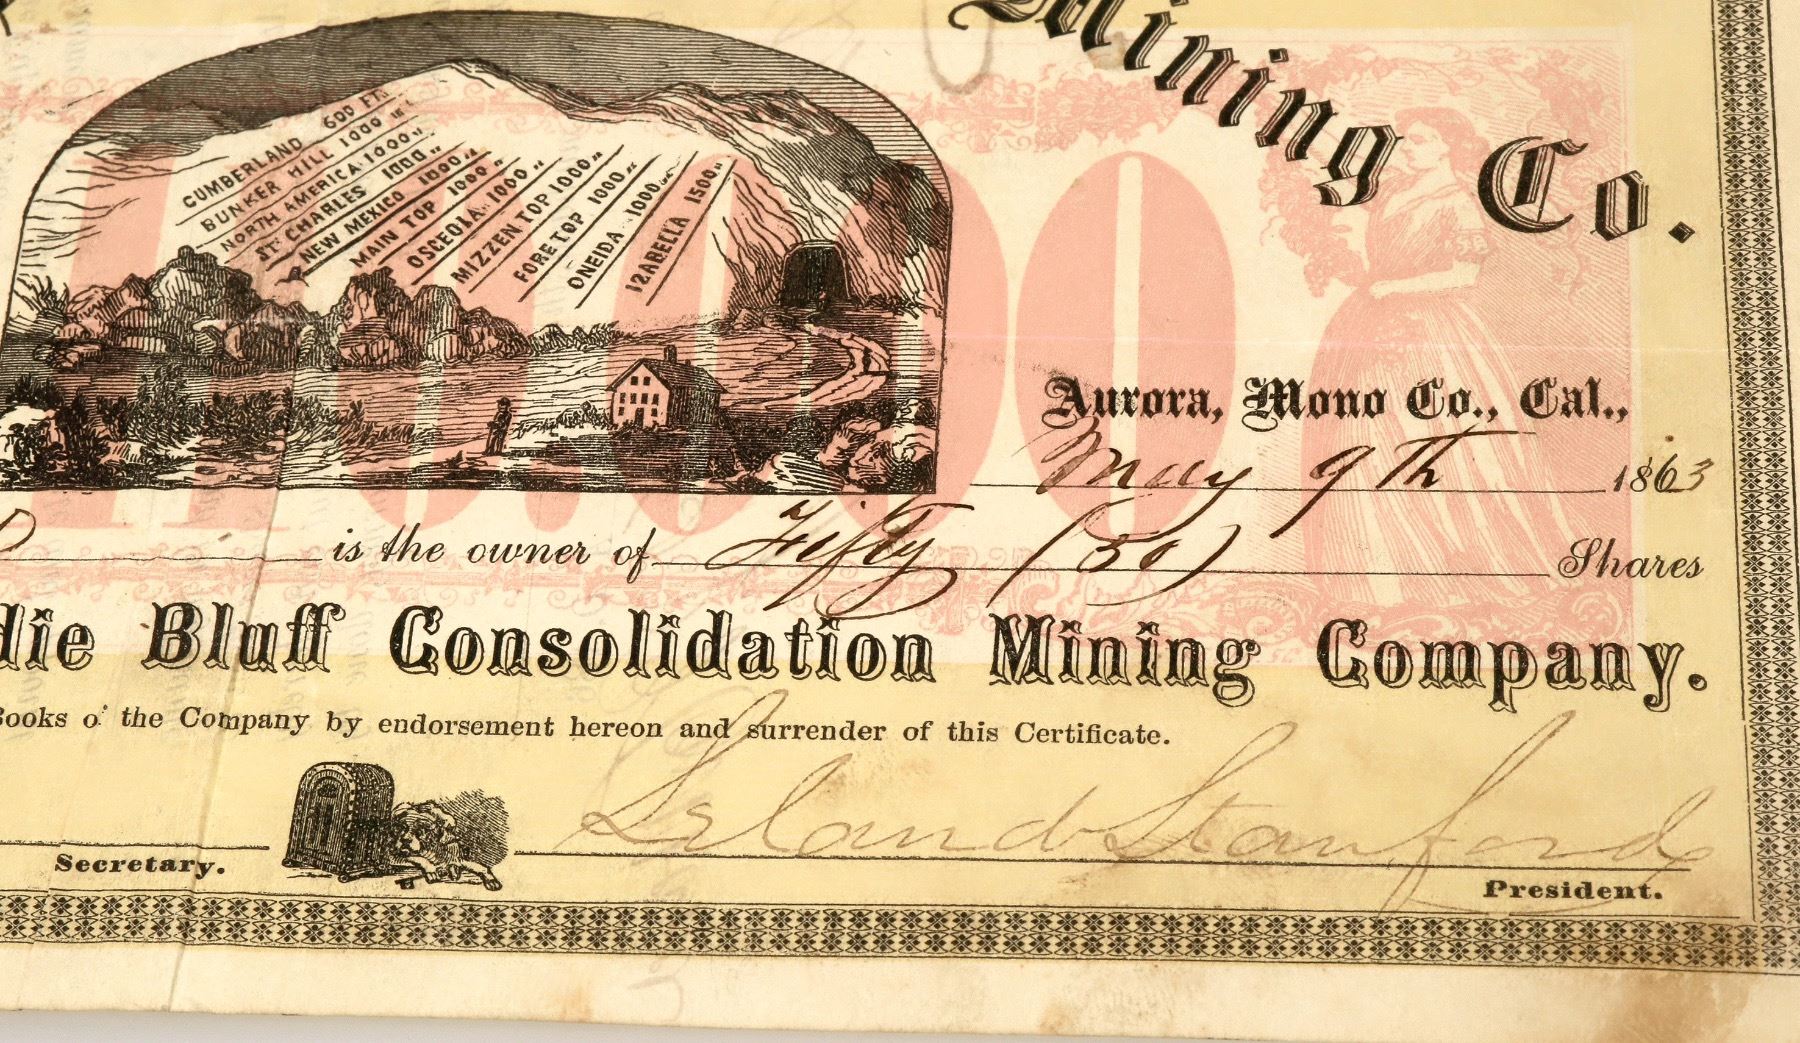 Mining Co.
CUMBERLAND 600 FT.
BUNKER HILL 1000 "
NORTH AMERICA 1000 "
ST. CHARLES 1000 "
NEW MEXICO 1000 "
MAIN TOP 1000 "
OSCEOLA 1000 "
MIZZEN TOP 1000 "
FORE TOP 1000 "
ONEIDA 1000 "
IZABELLA 1500 "
Aurora, Mono Co., Cal.,
May 9th 1863
is the owner of Fifty (50) Shares
die Bluff Consolidation Mining Company.
Books of the Company by endorsement hereon and surrender of this Certificate.
Leland Stanford
Secretary. President.